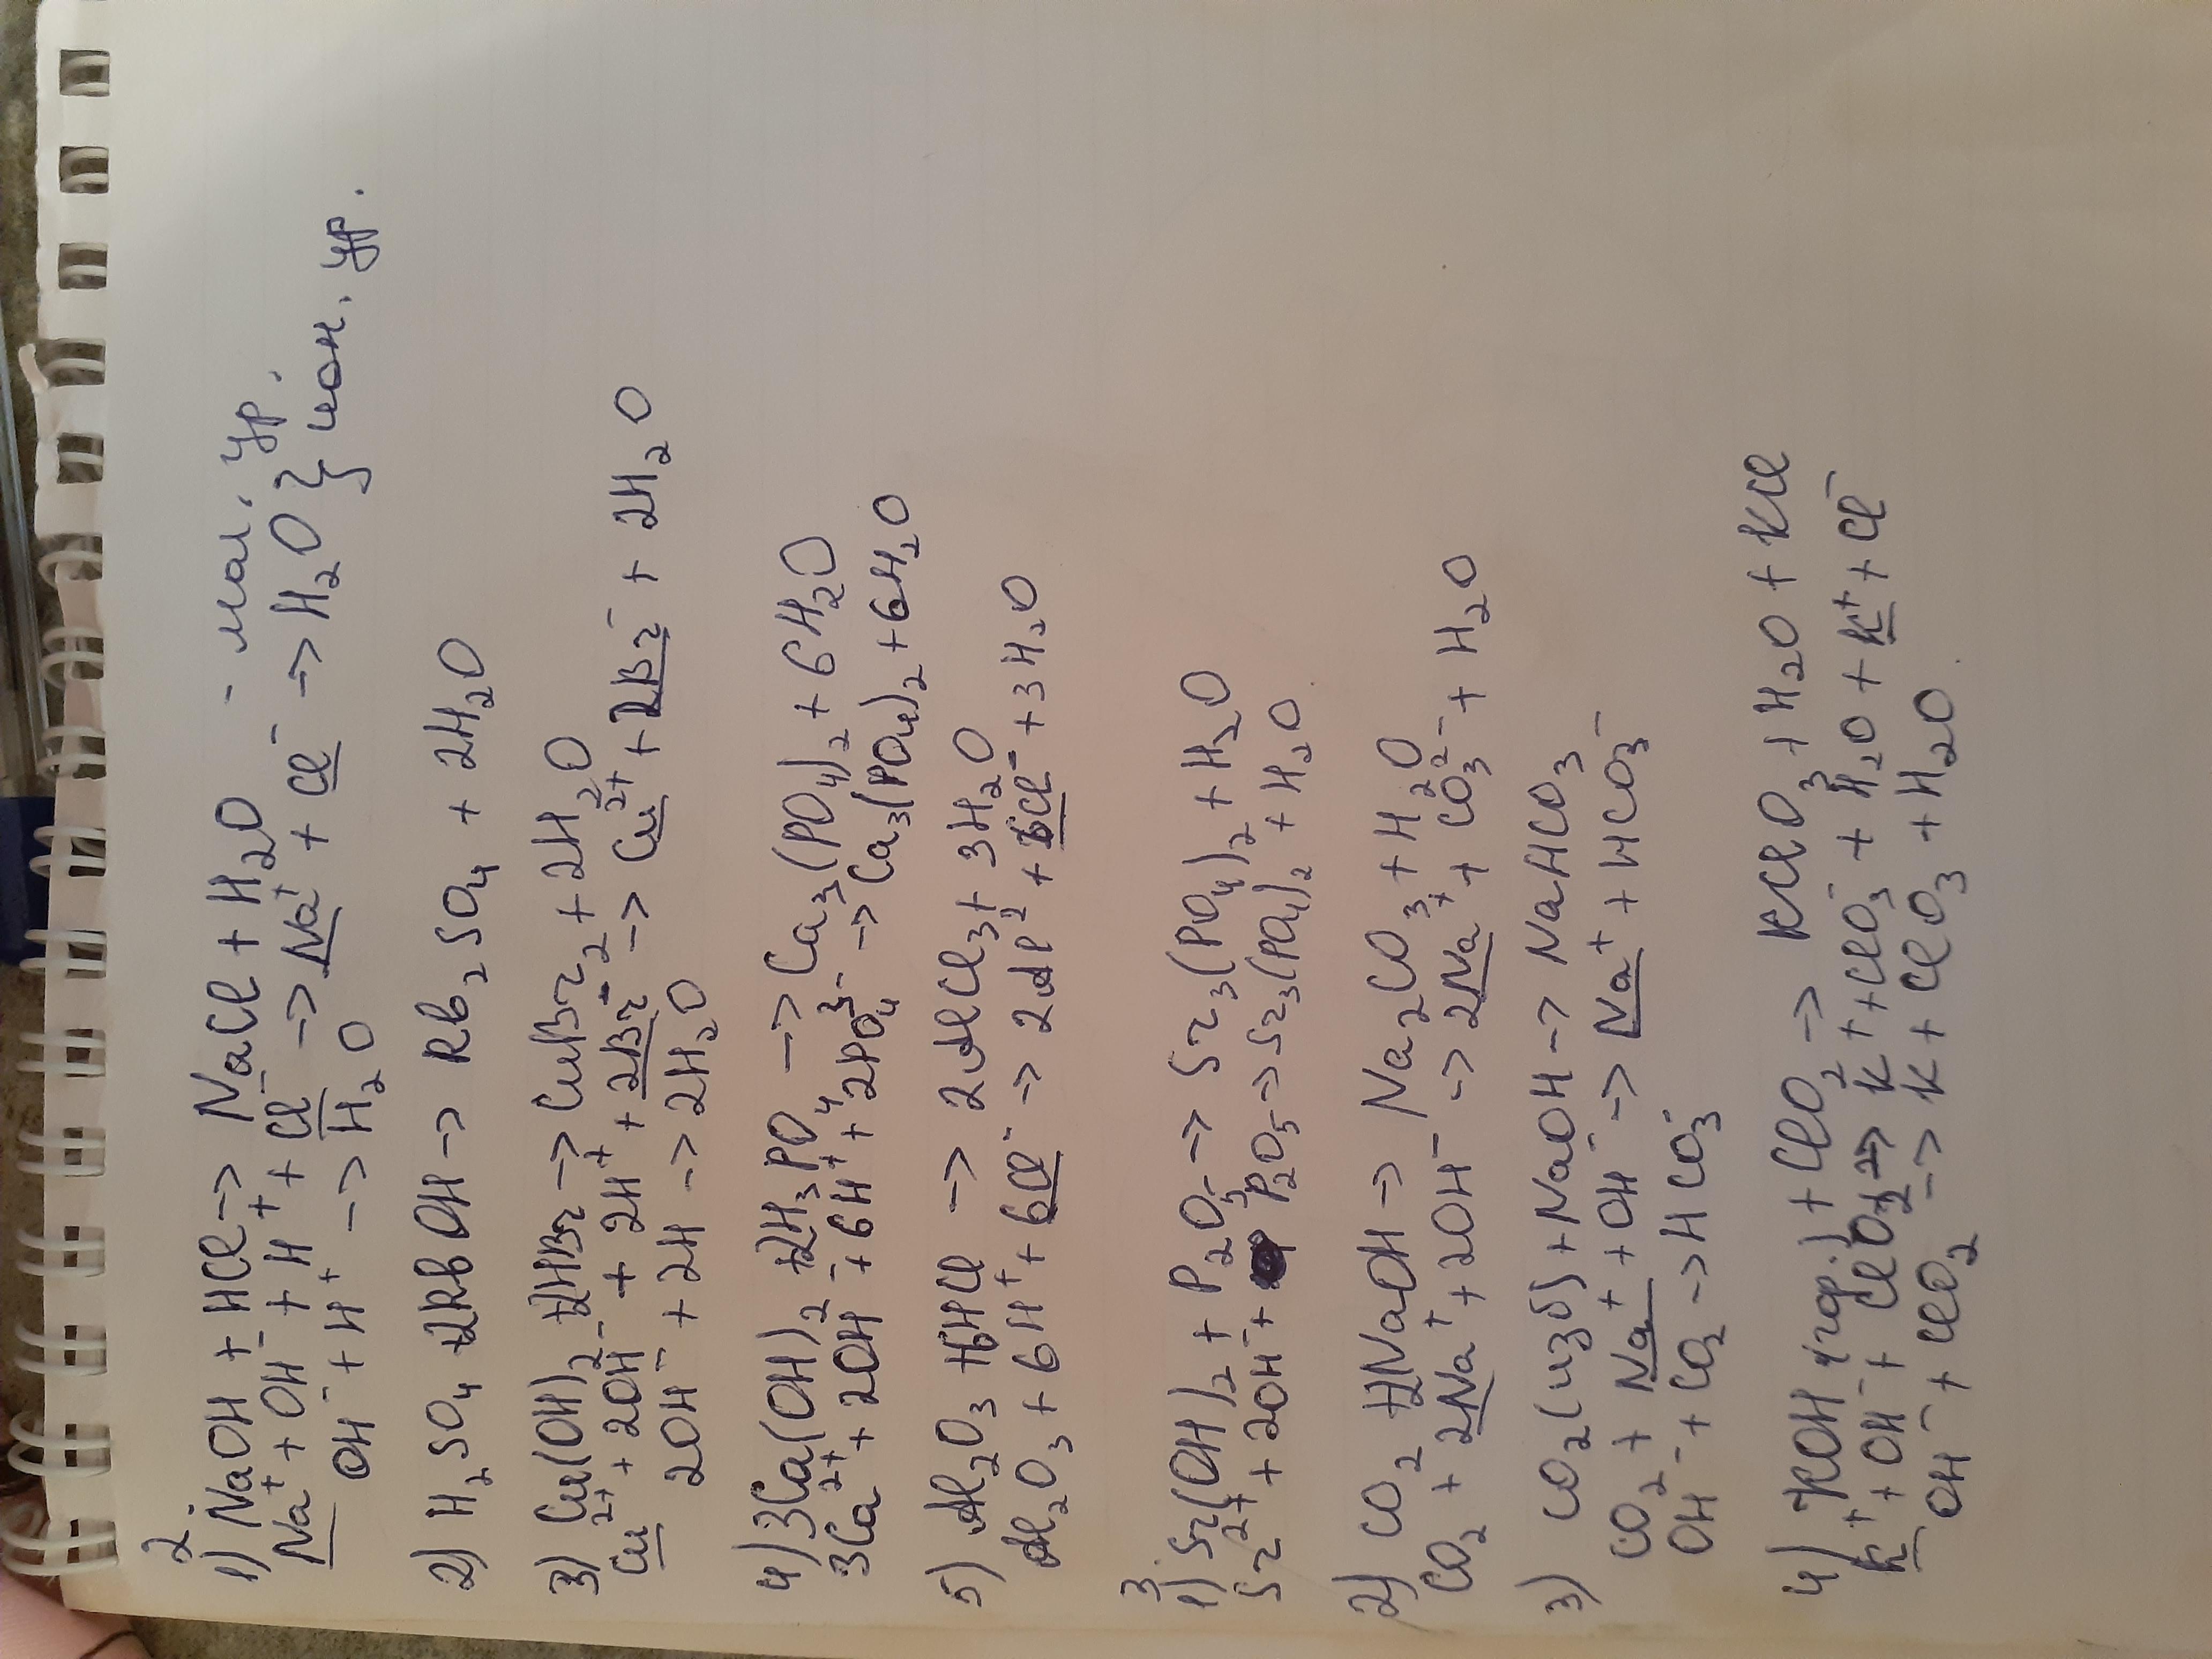 2.
1) NaOH + HCl -> NaCl + H₂O - мол. ур.
Na⁺ + OH⁻ + H⁺ + Cl⁻ -> Na⁺ + Cl⁻ -> H₂O } ион. ур.
OH⁻ + H⁺ -> H₂O
2) H₂SO₄ + 2RbOH -> Rb₂SO₄ + 2H₂O
3) Cu(OH)₂ + 2HBr -> CuBr₂ + 2H₂O
Cu²⁺ + 2OH⁻ + 2H⁺ + 2Br⁻ -> Cu²⁺ + 2Br⁻ + 2H₂O
2OH⁻ + 2H -> 2H₂O
4) 3Ca(OH)₂ + 2H₃PO₄ -> Ca₃(PO₄)₂ + 6H₂O
3Ca²⁺ + 2OH⁻ + 6H⁺ + 2PO₄³⁻ -> Ca₃(PO₄)₂ + 6H₂O
5) Al₂O₃ + 6HCl -> 2AlCl₃ + 3H₂O
Al₂O₃ + 6H⁺ + 6Cl⁻ -> 2Al² + 6Cl⁻ + 3H₂O
3
1) Sr(OH)₂ + P₂O₅ -> Sr₃(PO₄)₂ + H₂O
Sr²⁺ + 2OH⁻ + P₂O₅ -> Sr₃(PO₄)₂ + H₂O
2) CO₂ + 2NaOH -> Na₂CO₃ + H₂O
CO₂ + 2Na⁺ + 2OH⁻ -> 2Na⁺ + CO₃²⁻ + H₂O
3) CO₂(изб) + NaOH -> NaHCO₃
CO₂ + Na⁺ + OH⁻ -> Na⁺ + HCO₃⁻
OH⁻ + CO₂ -> HCO₃⁻
4) KOH (гор.) + ClO₂ -> KClO₃ + H₂O + KCl
K⁺ + OH⁻ + ClO₂ -> K⁺ + ClO₃⁻ + H₂O + K⁺ + Cl⁻
OH⁻ + ClO₂ -> K + ClO₃ + H₂O